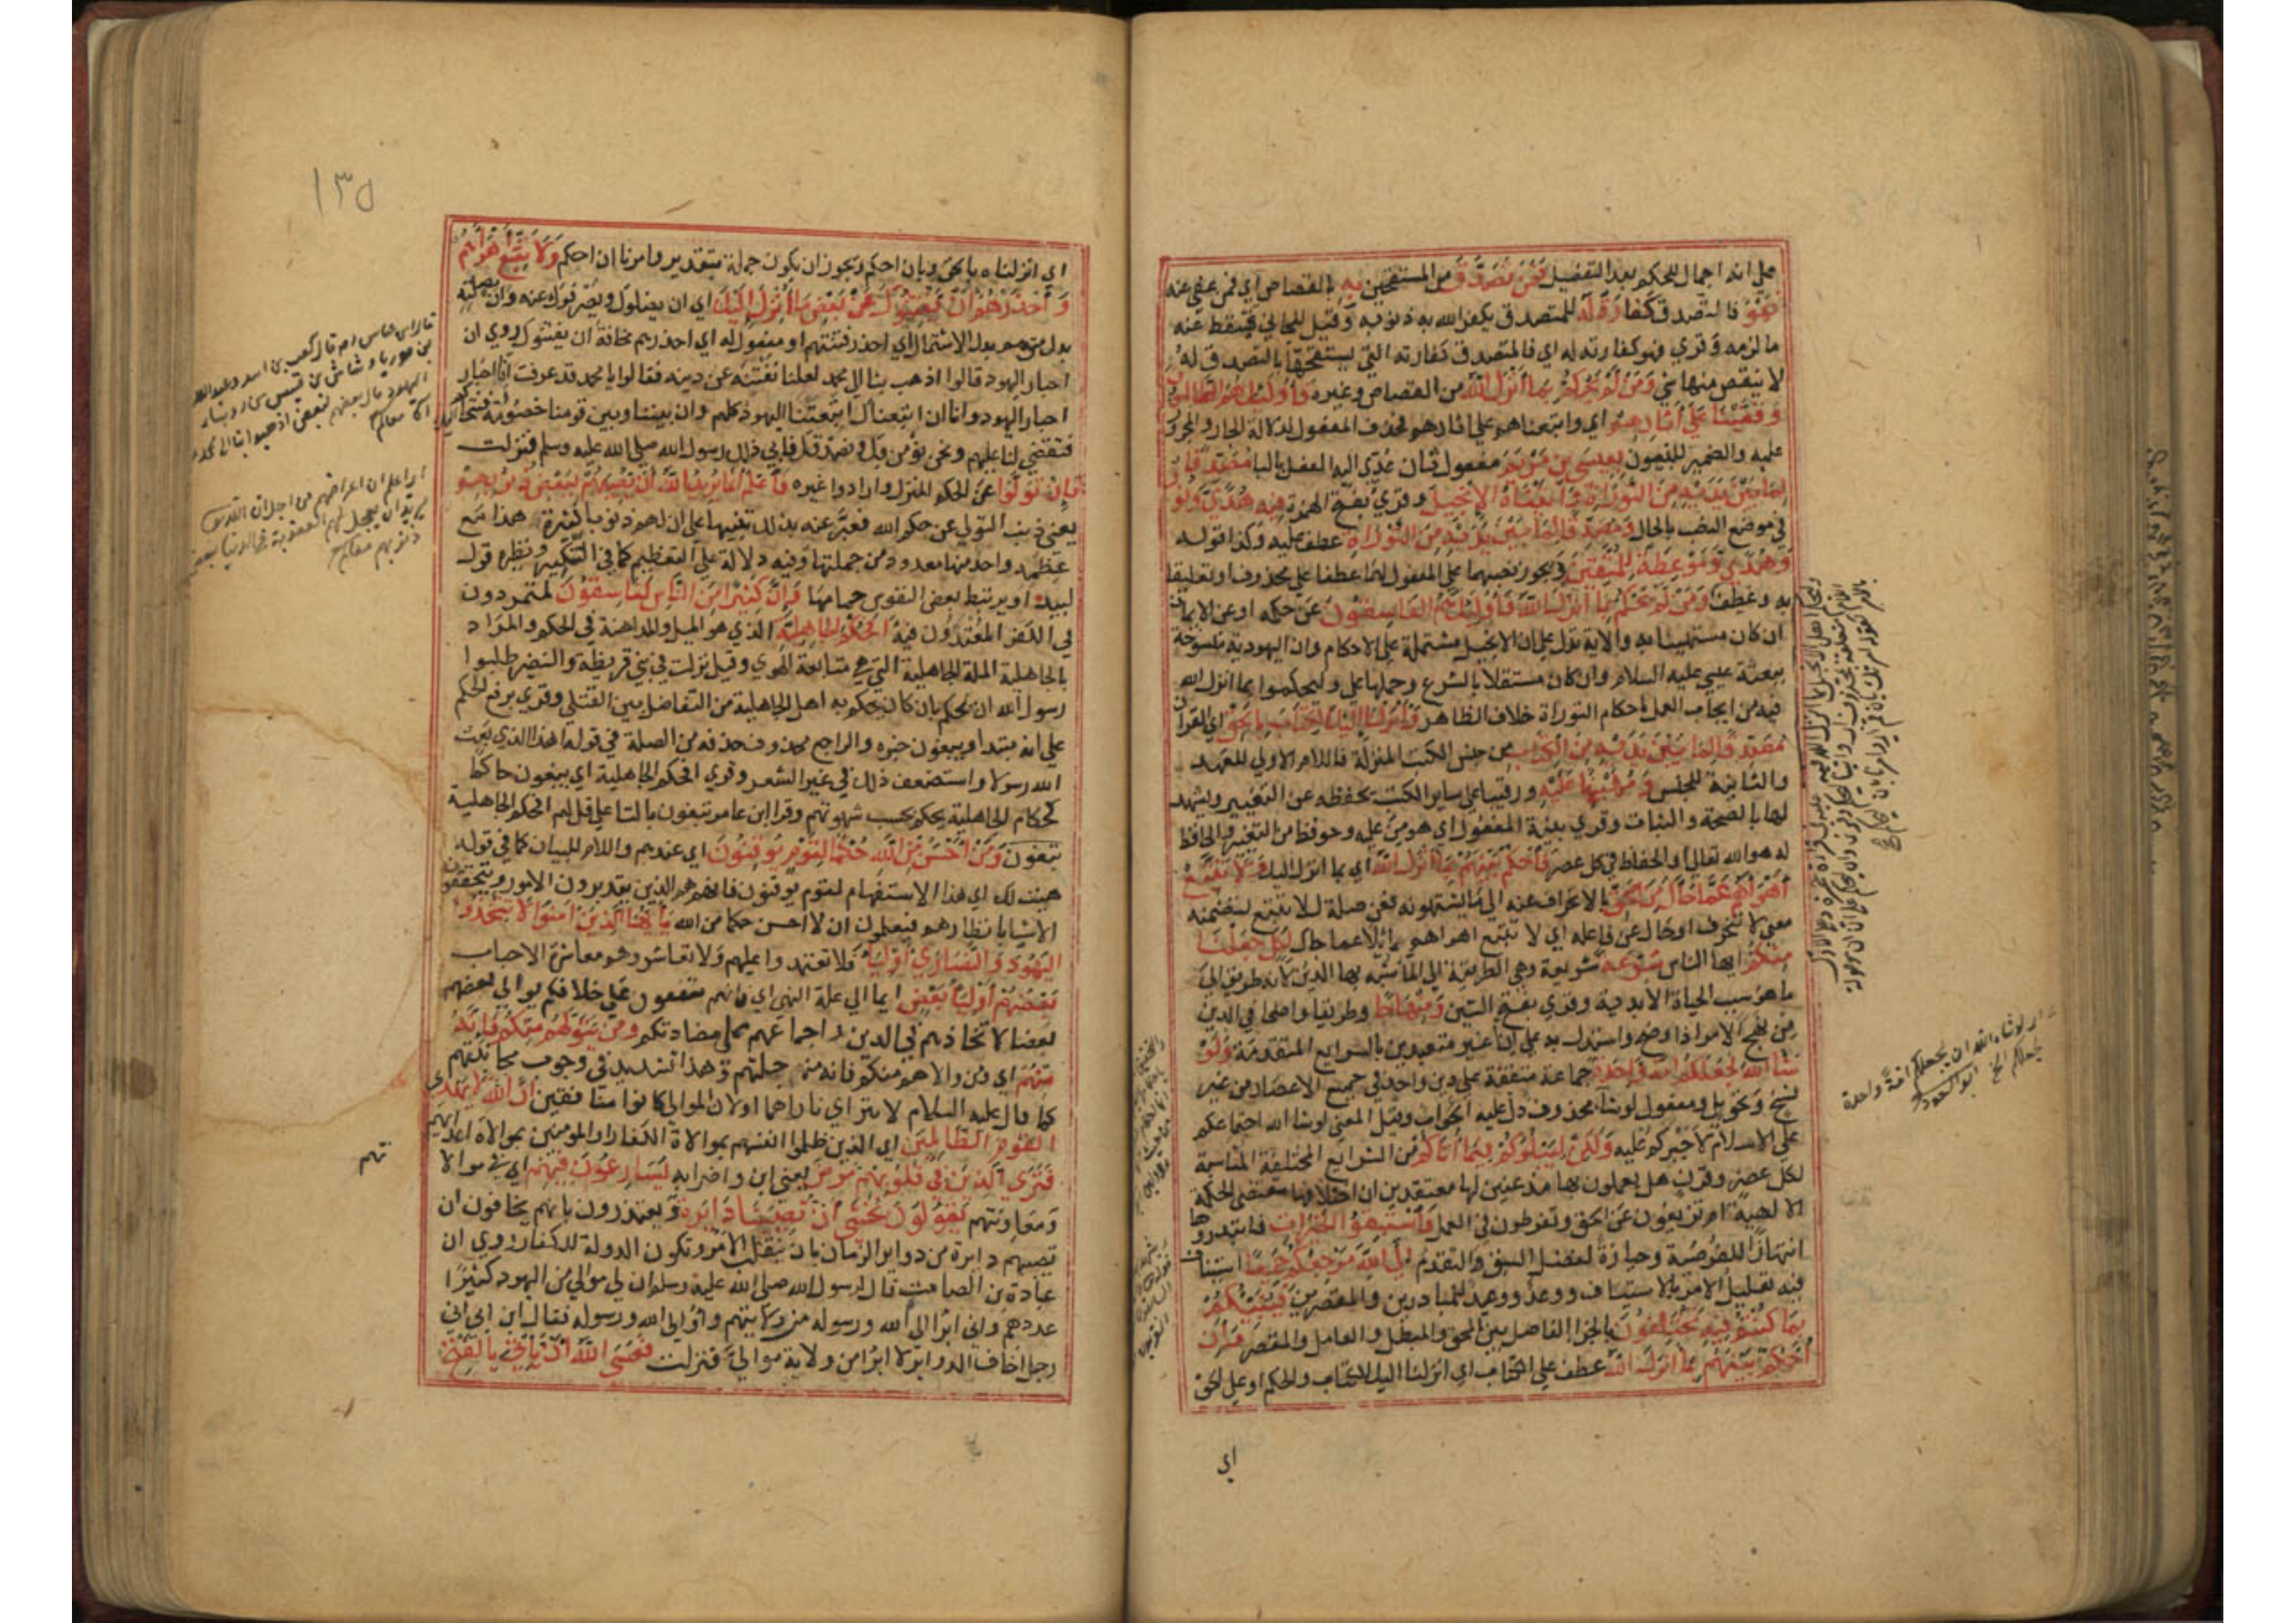 على انه اجمال للحكم بعد التفضيل فَمَنْ تَصَدَّقَ من المستحقين بِهِ بالقصاص اي فمن عفي عنه
فَهُوَ فالتصدق كَفَّارَةٌ لَّهُ للمتصدق يكفر الله به ذنوبه وقيل للجاني يسقط عنه
ما لزمه وقري فهو كفارته له اي فالمتصدق كفارته التي يستحقها بالتصدق له
لا ينقص منها شي وَمَنْ لَمْ يَحْكُمْ بِمَا أَنْزَلَ اللَّهُ من القصاص وغيره فَأُولَئِكَ هُمُ الظَّالِمُونَ
وَقَفَّيْنَا عَلَى أَثَارِهِمْ اي واتبعناهم على اثارهم فحذف المفعول لدلالة الجار والمجرور
عليه والضمير للنبيون بِعِيسَى بْنِ مَرْيَمَ مفعول ثان عدّي اليه الفعل بالبا مُصَدِّقًا
لِمَا بَيْنَ يَدَيْهِ مِنَ التَّوْرَاةِ وَآتَيْنَاهُ الْإِنْجِيلَ وقري بفتح الهمزة فِيهِ هُدًى وَنُورٌ
في موضع النصب بالحال وَمُصَدِّقًا لِمَا بَيْنَ يَدَيْهِ مِنَ التَّوْرَاةِ عطف عليه وكذا قوله
وَهُدًى وَمَوْعِظَةً لِلْمُتَّقِينَ ويجوز نصبهما على المفعول لهما عطفا على محذوف او تعليقا
به وعطف وَمَنْ لَمْ يَحْكُمْ بِمَا أَنْزَلَ اللَّهُ فَأُولَئِكَ هُمُ الْفَاسِقُونَ عن حكمه او عن الايمان
ان كان مستهينا به والاية تدل على ان الانجيل مشتملة على الاحكام وان اليهودية منسوخة
ببعثة عيسى عليه السلام وانه كان مستقلا بالشرع وحملها على وليحكموا بما انزل الله
فيه من ايجاب العمل باحكام التوراة خلاف الظاهر وَأَنْزَلْنَا إِلَيْكَ الْكِتَابَ بِالْحَقِّ اي القران
مُصَدِّقًا لِمَا بَيْنَ يَدَيْهِ مِنَ الْكِتَابِ من جنس الكتب المنزلة فاللام الاولي للعهد
والثانية للجنس وَمُهَيْمِنًا عَلَيْهِ ورقيبا على ساير الكتب يحفظه عن التغيير ويشهد
لها بالصحة والثبات وقري بنية المفعول اي هومن عليه وحوفظ من التغيير والحافظ
له هو الله تعالى او الحفاظ في كل عصر فَاحْكُمْ بَيْنَهُمْ بِمَا أَنْزَلَ اللَّهُ اي بما انزل اليك وَلَا تَتَّبِعْ
أَهْوَاءَهُمْ عَمَّا جَاءَكَ مِنَ الْحَقِّ بالانحراف عنه الى ما يشتهونه فعن صلة للا تتبع لتضمنه
معنى لا تنحرف او حال عن فاعله اي لا تتبع اهواهم مائلا عما جاك لِكُلٍّ جَعَلْنَا
مِنْكُمْ ايها الناس شِرْعَةً شريعة وهي الطريقة الى الما شبه بها الدين لانه طريق الى
ما هو سبب الحياة الابدية وقري بفتح الشين وَمِنْهَاجًا وطريقا واضحا في الدين
من نهج الامر اذا وضح واستدل به على انا غير متعبدين بالشرايع المتقدمة وَلَوْ
شَاءَ اللَّهُ لَجَعَلَكُمْ أُمَّةً وَاحِدَةً جماعة متفقة على دين واحد في جميع الاعصار من غير
نسخ وتحويل ومفعول لوشا محذوف دل عليه الجواب وقيل المعنى لوشا الله اجتماعكم
على الاسلام لاجبركم عليه وَلَكِنْ لِيَبْلُوَكُمْ فِيمَا آتَاكُمْ من الشرايع المختلفة المناسبة
لكل عصر وقرن هل يعملون بها مذعنين لها معتقدين ان اختلافها مقتضى الحكمة
الالهية ام تزيغون عن الحق وتفرطون في العمل فَاسْتَبِقُوا الْخَيْرَاتِ فابتدروها
انتهازا للفرصة وحيازة لفضل السبق والتقدم إِلَى اللَّهِ مَرْجِعُكُمْ جَمِيعًا استيناف
فيه تعليل الامر بالاستباق ووعد ووعيد للمبادرين والمقصرين فَيُنَبِّئُكُمْ
بِمَا كُنْتُمْ فِيهِ تَخْتَلِفُونَ بالجزا الفاصل بين المحق والمبطل والعامل والمقصر وَأَنِ
احْكُمْ بَيْنَهُمْ بِمَا أَنْزَلَ اللَّهُ عطف على الكتاب اي انزلنا اليك الكتاب والحكم او على الحق
اي
ان يجعلكم امة واحدة
ابو السعود
١٣٥
اي انزلناه بالحق وبان احكم ويجوز ان يكون جملة بتقدير وامرنا ان احكم وَلَا تَتَّبِعْ أَهْوَاءَهُمْ
وَاحْذَرْهُمْ أَنْ يَفْتِنُوكَ عَنْ بَعْضِ مَا أَنْزَلَ اللَّهُ إِلَيْكَ اي ان يضلوك ويصرفوك عنه وان بصلته
بدل من هم بدل الاشتمال اي احذر فتنتهم او مفعول له اي احذرهم مخافة ان يفتنوك روي ان
احبار اليهود قالوا اذهب بنا الى محمد لعلنا نفتنه عن دينه فقالوا يا محمد قد عرفت انا احبار
احبار اليهود وانا ان اتبعناك اتبعتنا اليهود كلهم وان بيننا وبين قومنا خصومة فنتحاكم اليك
فتقضي لنا عليهم ونحن نؤمن بك ونصدقك فابى ذلك رسول الله صلى الله عليه وسلم فنزلت
فَإِنْ تَوَلَّوْا عن الحكم المنزل وارادوا غيره فَاعْلَمْ أَنَّمَا يُرِيدُ اللَّهُ أَنْ يُصِيبَهُمْ بِبَعْضِ ذُنُوبِهِمْ
يعني ذنب التولي عن حكم الله فعبر عنه بذلك تنبيها على ان لهم ذنوبا كثيرة هذا مع
عظمه واحد منها معدود من جملتها وفيه دلالة على التعظيم كما في التنكير ونظيره قول
لبيد او يرتبط بعض النفوس حمامها وَإِنَّ كَثِيرًا مِنَ النَّاسِ لَفَاسِقُونَ لمتمردون
في الكفر المعتدون فيه أَفَحُكْمَ الْجَاهِلِيَّةِ الذي هو الميل والمداهنة في الحكم والمراد
بالجاهلية الملة الجاهلية التي هي متابعة الهوي وقيل نزلت في بني قريظة والنضير طلبوا
رسول الله ان يحكم بان كان يحكم به اهل الجاهلية من التفاضل بين القتلى وقري برفع الحكم
على انه مبتدا ويبغون خبره والراجع محذوف حذفه من الصلة في قوله اهذا الذي بعث
الله رسولا واستضعف ذلك في غير الشعر وقري افحكم الجاهلية اي يبغون حاكما
كحكام الجاهلية يحكم بحسب شهوتهم وقرا ابن عامر تبغون بالتا على قل لهم افحكم الجاهلية
تبغون وَمَنْ أَحْسَنُ مِنَ اللَّهِ حُكْمًا لِقَوْمٍ يُوقِنُونَ اي عندهم واللام للبيان كما في قوله
هيت لك اي هذا الاستفهام لقوم يوقنون فانهم هم الذين يتدبرون الامور ويتحققون
الاشيا بانظارهم فيعلمون ان لا احسن حكما من الله يَا أَيُّهَا الَّذِينَ آمَنُوا لَا تَتَّخِذُوا
الْيَهُودَ وَالنَّصَارَى أَوْلِيَاءَ فلا تعتمدوا عليهم ولا تعاشروهم معاشرة الاحباب
بَعْضُهُمْ أَوْلِيَاءُ بَعْضٍ ايما الى علة النهي اي فانهم متفقون على خلافكم يوالي بعضهم
بعضا لاتحادهم في الدين واجماعهم على مضادتكم وَمَنْ يَتَوَلَّهُمْ مِنْكُمْ فَإِنَّهُ
مِنْهُمْ اي ومن والاهم منكم فانه من جملتهم وهذا التشديد في وجوب مجانبتهم
كما قال عليه السلام لا تتراي ناراهما اولان الموالي كانوا منافقين إِنَّ اللَّهَ لَا يَهْدِي
الْقَوْمَ الظَّالِمِينَ اي الذين ظلموا انفسهم بموالاة الكفار او المومنين بموالاة اعدائهم
فَتَرَى الَّذِينَ فِي قُلُوبِهِمْ مَرَضٌ يعني ابن واضرابه يُسَارِعُونَ فِيهِمْ اي في موالا
ومعاونتهم يَقُولُونَ نَخْشَى أَنْ تُصِيبَنَا دَائِرَةٌ ويعتذرون بانهم يخافون ان
تصيبهم دايرة من دواير الزمان بان ينقلب الامر وتكون الدولة للكفار روي ان
عبادة بن الصامت قال لرسول الله صلى الله عليه وسلم ان لي موالي من اليهود كثيرا
عددهم واني ابرا الى الله ورسوله من ولايتهم واوالي الله ورسوله فقال ابن ابي اني
رجل اخاف الدواير لا ابرا من ولاية موالي فنزلت فَعَسَى اللَّهُ أَنْ يَأْتِيَ بِالْفَتْحِ
تهم